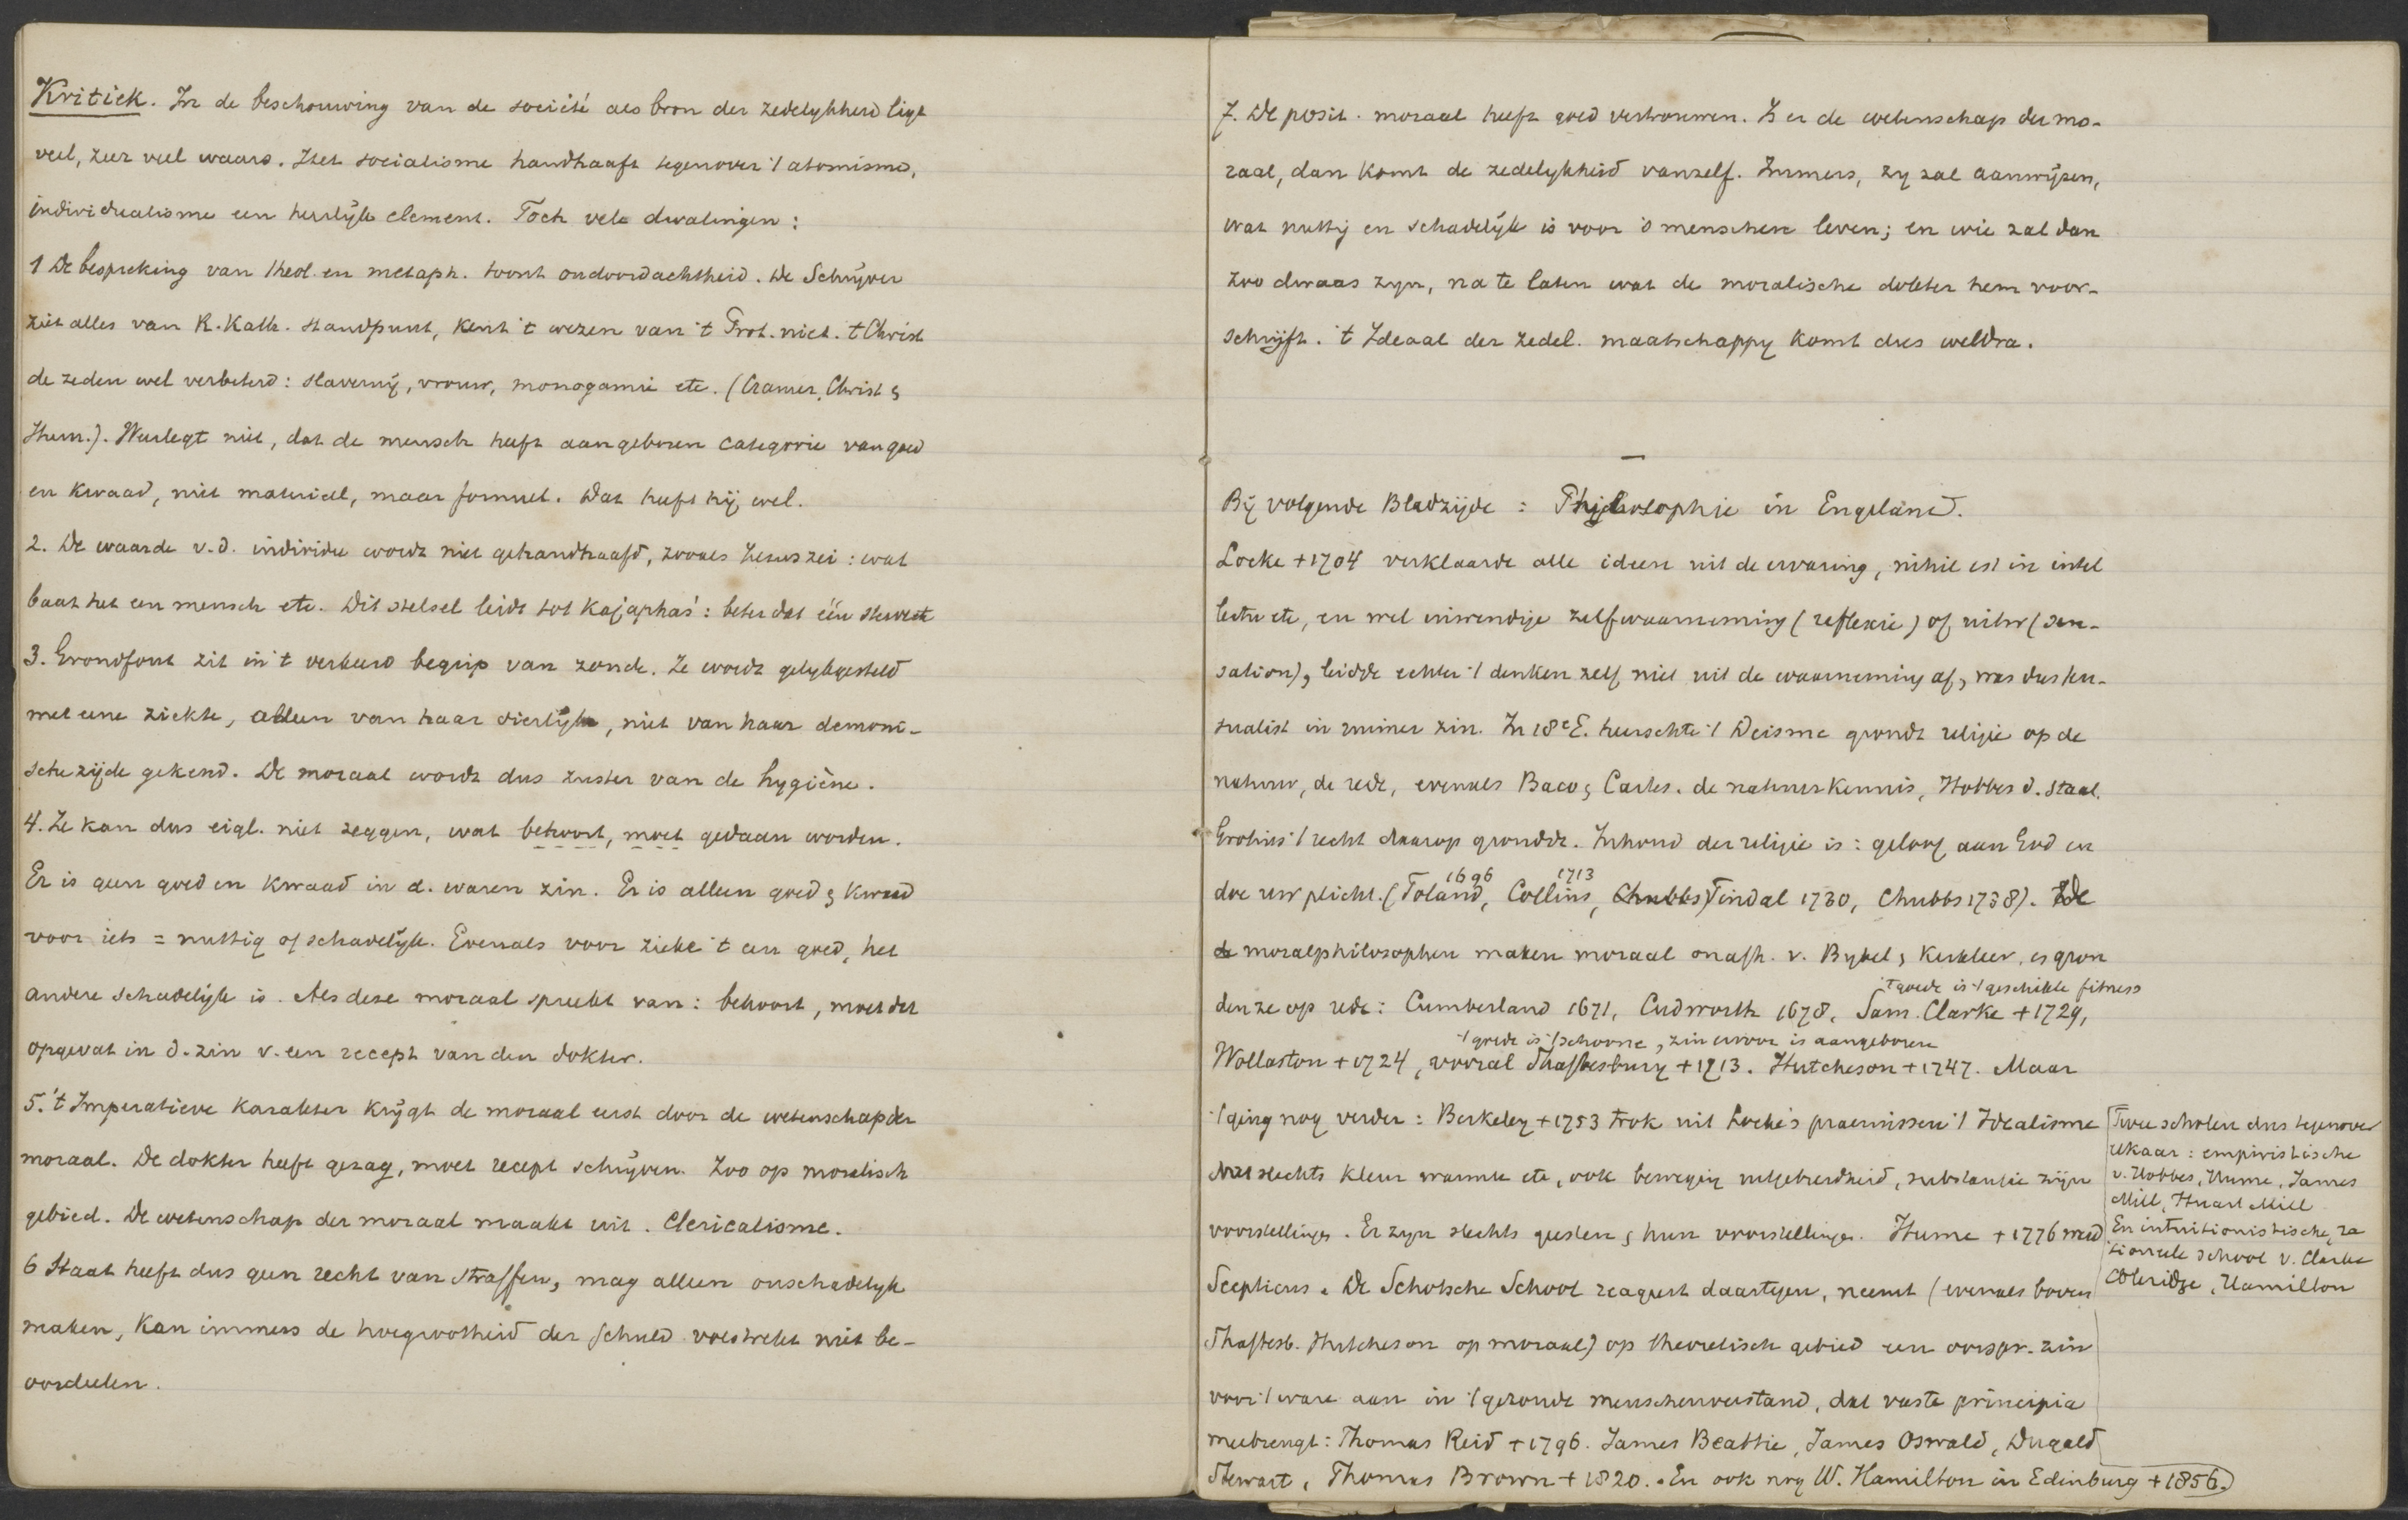 Kritiek. In de beschouwing van de société als bron der zedelykheid ligt
veel, zeer veel waars. Het socialisme handhaaft tegenover 't atomisme,
individualisme een heerlijk element. Toch vele dwalingen:
1 De bespreking van theol. en metaph. toont ondoordachtheid. De Schrijver
ziet alles van R. Kath. standpunt, kent 't wezen van 't Prot. niet. 't Christ
de zeden wel verbeterd: slavernij, vrouw, monogamie etc. (Cramer, Christ &
Hum.). Weerlegt niet, dat de mensch heeft aangeboren categorie van goed
en kwaad, niet materieel, maar formeel. Dat heeft hij wel.
2. De waarde v.d. individu wordt niet gehandhaafd, zooals Jezus zei: wat
baat het een mensch etc. Dit stelsel leidt tot Kajaphas': beter dat één sterve
3. Grondfout zit in 't verkeerd begrip van zonde. Ze wordt gelykgesteld
met eene ziekte, alleen van haar dierlijke, niet van haar demoni-
sche zijde gekend. De moraal wordt dus zuster van de hygiène.
4. Ze kan dus eigl. niet zeggen, wat behoort, moet gedaan worden.
Er is geen goed en kwaad in d. waren zin. Er is alleen goed & kwaad
voor iets = nuttig of schadelijk. Evenals voor zieke 't een goed, het
andere schadelijk is. Als deze moraal spreekt van: behoort, moet dit
opgevat in d. zin v. een recept van den dokter.
5. 't Imperatieve karakter krijgt de moraal eerst door de wetenschap der
moraal. De dokter heeft gezag, moet recept schrijven. Zoo op moralisch
gebied. De wetenschap der moraal maakt uit. Clericalisme.
6 Staat heeft dus geen recht van straffen, mag alleen onschadelyk
maken, kan immers de hoegrootheid der schuld volstrekt niet be-
oordeelen.
7. De posit. moraal heeft goed vertrouwen. Is er de wetenschap der mo-
raal, dan komt de zedelykheid vanzelf. Immers, zy zal aanwijzen,
wat nuttig en schadelijk is voor 's menschen leven; en wie zal dan
zoo dwaas zyn, na te laten wat de moralische dokter hem voor-
schrijft. 't Ideaal der zedel. maatschappy komt dus weldra.
—
Bij volgende Bladzijde: Philosophie in Engeland.
Locke +1704 verklaarde alle ideen uit de ervaring, nihil est in intel
lectu etc, en wel inwendige zelfwaarneming (reflexie) of uitw (sen-
sation), leidde echter 't denken zelf niet uit de waarneming af, was dus sen-
sualist in ruimer zin. In 18e E. heerschte 't Deisme grondt religie op de
natuur, de rede, evenals Baco & Cartes. de natuurkennis, Hobbes d. staat.
Grotius 't recht daarop grondde. Inhoud der religie is: geloof aan God en
doe uw plicht. (Toland 1696, Collins 1713, Chubbs) Tindal 1730, Chubbs 1738). De
de moralphilosophen maken moraal onafh. v. Bybel & kerkleer, & gron
't goede is 't geschikte fitness
den ze op rede: Cumberland 1671, Cudworth 1678, Sam. Clarke +1729,
't goede is 't schoone, zin ervoor is aangeboren
Wollaston +1724, vooral Shaftesbury +1713. Hutcheson +1747. Maar
't ging nog verder: Berkeley +1753 trok uit Locke's praemissen 't Idealisme
slechts kleur warmte etc, ook beweging uitgebreidheid, substantie zijn
voorstellingen. Er zyn slechts geesten & hun voorstellingen. Hume +1776 werd
Scepticus. De Schotsche School reageert daartegen, neemt (evenals boven
Shaftesb. Hutcheson op moraal) op theoretisch gebied een oorspr. zin
voor 't ware aan in 't gezonde menschenverstand, dat vaste principia
meebrengt: Thomas Reid +1796. James Beattie, James Oswald, Dugald
Stewart, Thomas Brown +1820. En ook nog W. Hamilton in Edinburg +1856.
Twee scholen dus tegenover
elkaar: empiristische
v. Hobbes, Hume, James
Mill, Stuart Mill
En intuitionistische, ra
tionele school v. Clarke
Coleridge, Hamilton